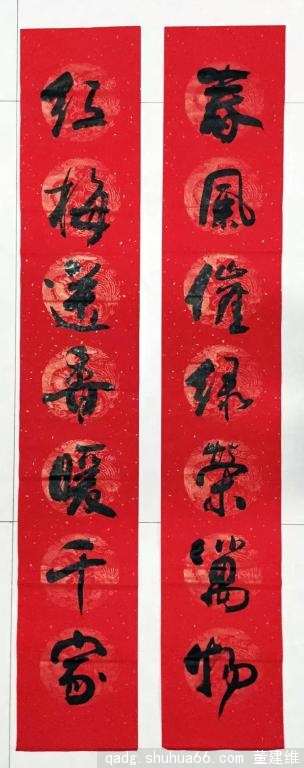 春風催绿榮萬物
红梅送香暖千家
qadg.shuhua66.com 董建维